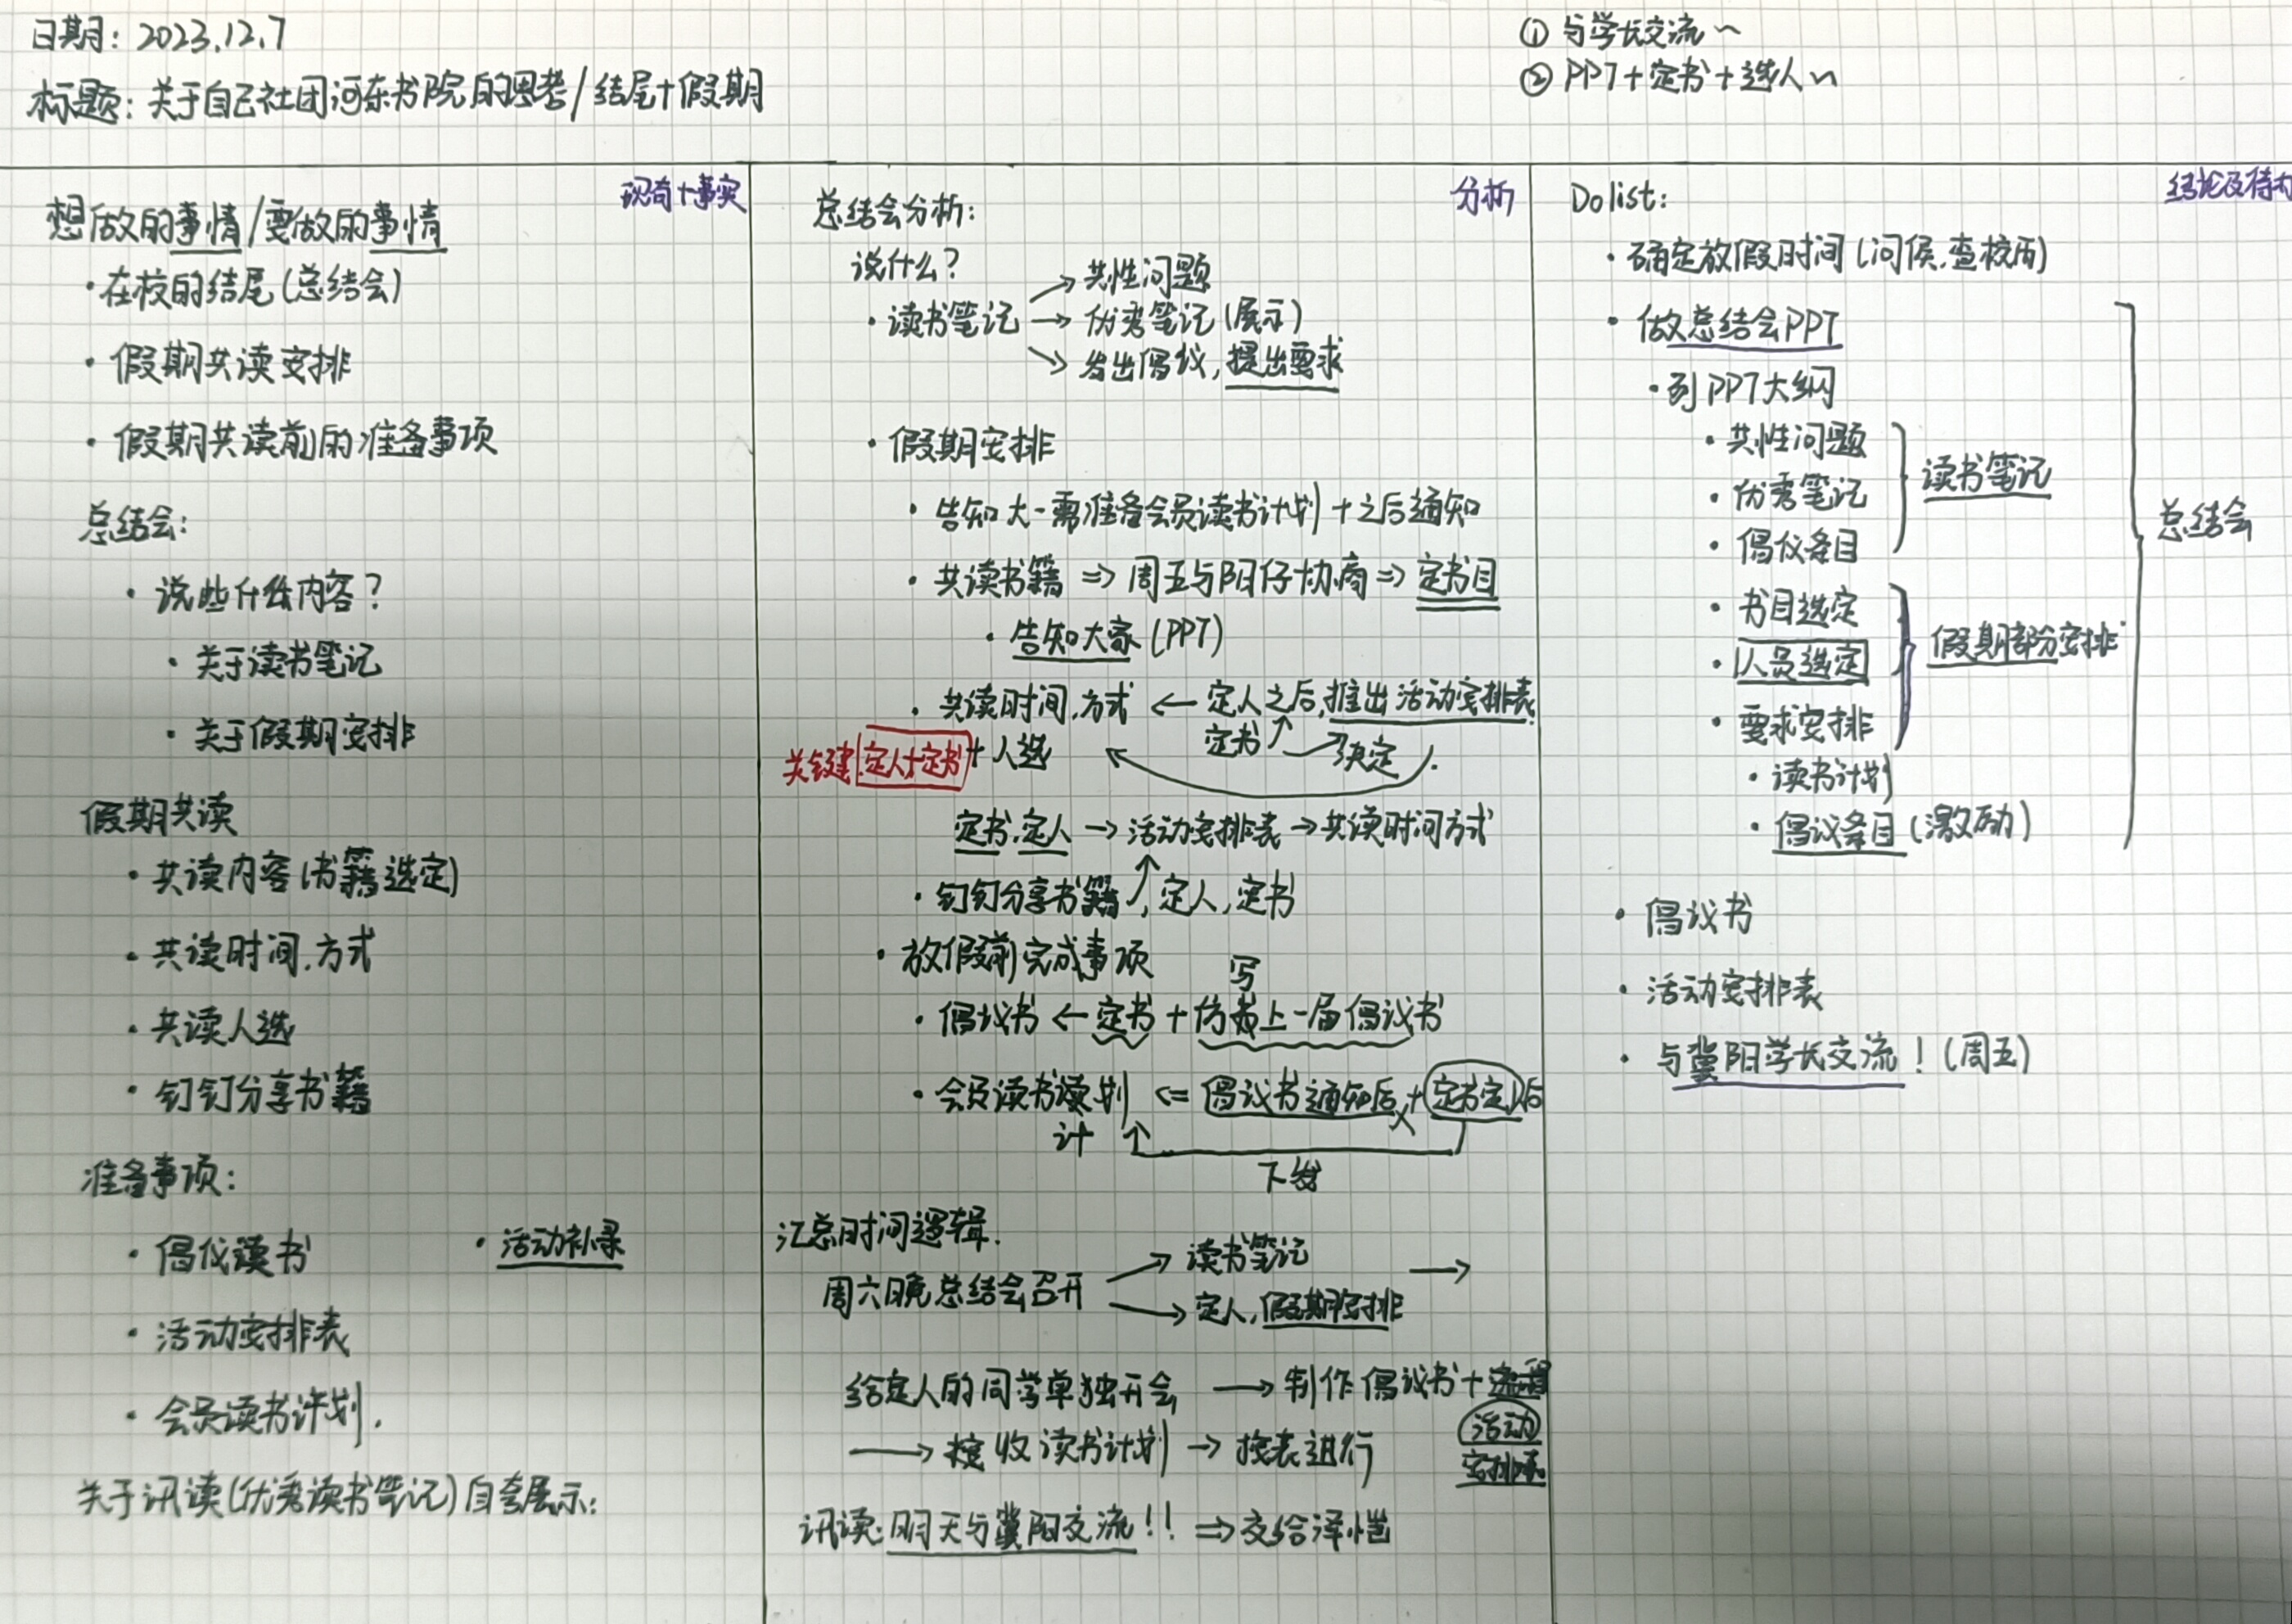 日期：2023.12.7
标题：关于自己社团河东书院的思考/结尾+假期
① 与学长交流~
② PPT+定书+选人~
现奇+事实
想做的事情/要做的事情
·在校的结尾(总结会)
·假期共读安排
·假期共读前的准备事项
总结会：
·说些什么内容？
·关于读书笔记
·关于假期安排
假期共读
·共读内容(书籍选定)
·共读时间.方式
·共读人选
·钉钉分享书籍
准备事项：
·倡仪读书
·活动补录
·活动安排表
·会员读书计划.
关于讯读(优秀读书笔记)自套展示：
分析
总结会分析：
说什么？
·读书笔记
→共性问题
→优秀笔记(展示)
→发出倡议,提出要求
·假期安排
·告知大一需准备会员读书计划+之后通知
·共读书籍⇒周五与阳仔协商⇒定书目
·告知大家(PPT)
·共读时间.方式←定人之后,推出活动安排表.
定书↑→决定
关键:定人+定书+人选
定书.定人→活动安排表→共读时间方式
·钉钉分享书籍↗,定人,定书
·放假前完成事项
写
·倡议书←定书+仿上一届倡议书
·会员读书划⇐倡议书通知后+定书定人后
计
下发
汇总时间逻辑.
周六晚总结会召开
→读书笔记→
→定人,假期安排
给定人的同学单独开会→制作倡议书+
活动
安排表
→接收读书计划→按表进行
讯读:明天与冀阳交流!!⇒交给泽恺
结论及待办
Dolist:
·确定放假时间(问侯.查校历)
·做总结会PPT
·列PPT大纲
·共性问题
·优秀笔记
·倡仪条目
读书笔记
·书目选定
·人员选定
·要求安排
假期部分安排
·读书计划
·倡议条目(激励)
总结会
·倡议书
·活动安排表
·与冀阳学长交流!(周五)